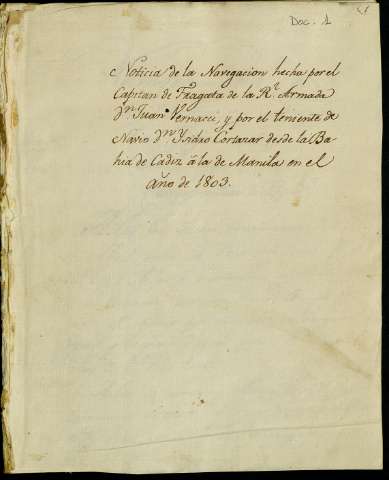 Doc. 1
Noticia de la Navegacion hecha por el
Capitan de Fragata de la Rl. Armada
Dn. Juan Vernacci, y por el teniente de
Navio Dn. Ysidro Cortazar desde la Ba-
hia de Cadiz á la de Manila en el
año de 1803.